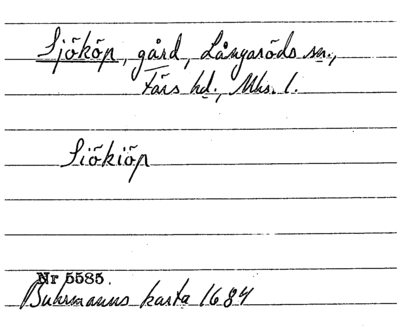 Sjököp, gård, Långaröds sn.,
Färs hd., Mhs. l.
Siökiöp
Nr 5585.
Buhrmanns karta 1684